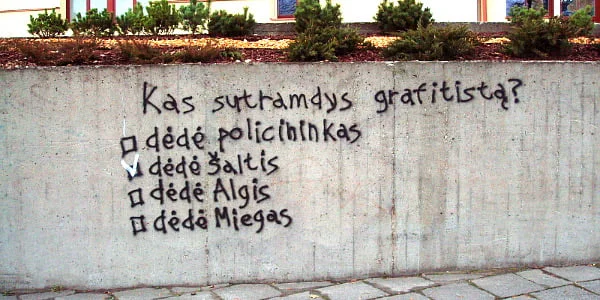 Kas sutramdys grafitistą?
dėdė policininkas
dėdė šaltis
dėdė Algis
dėdė Miegas